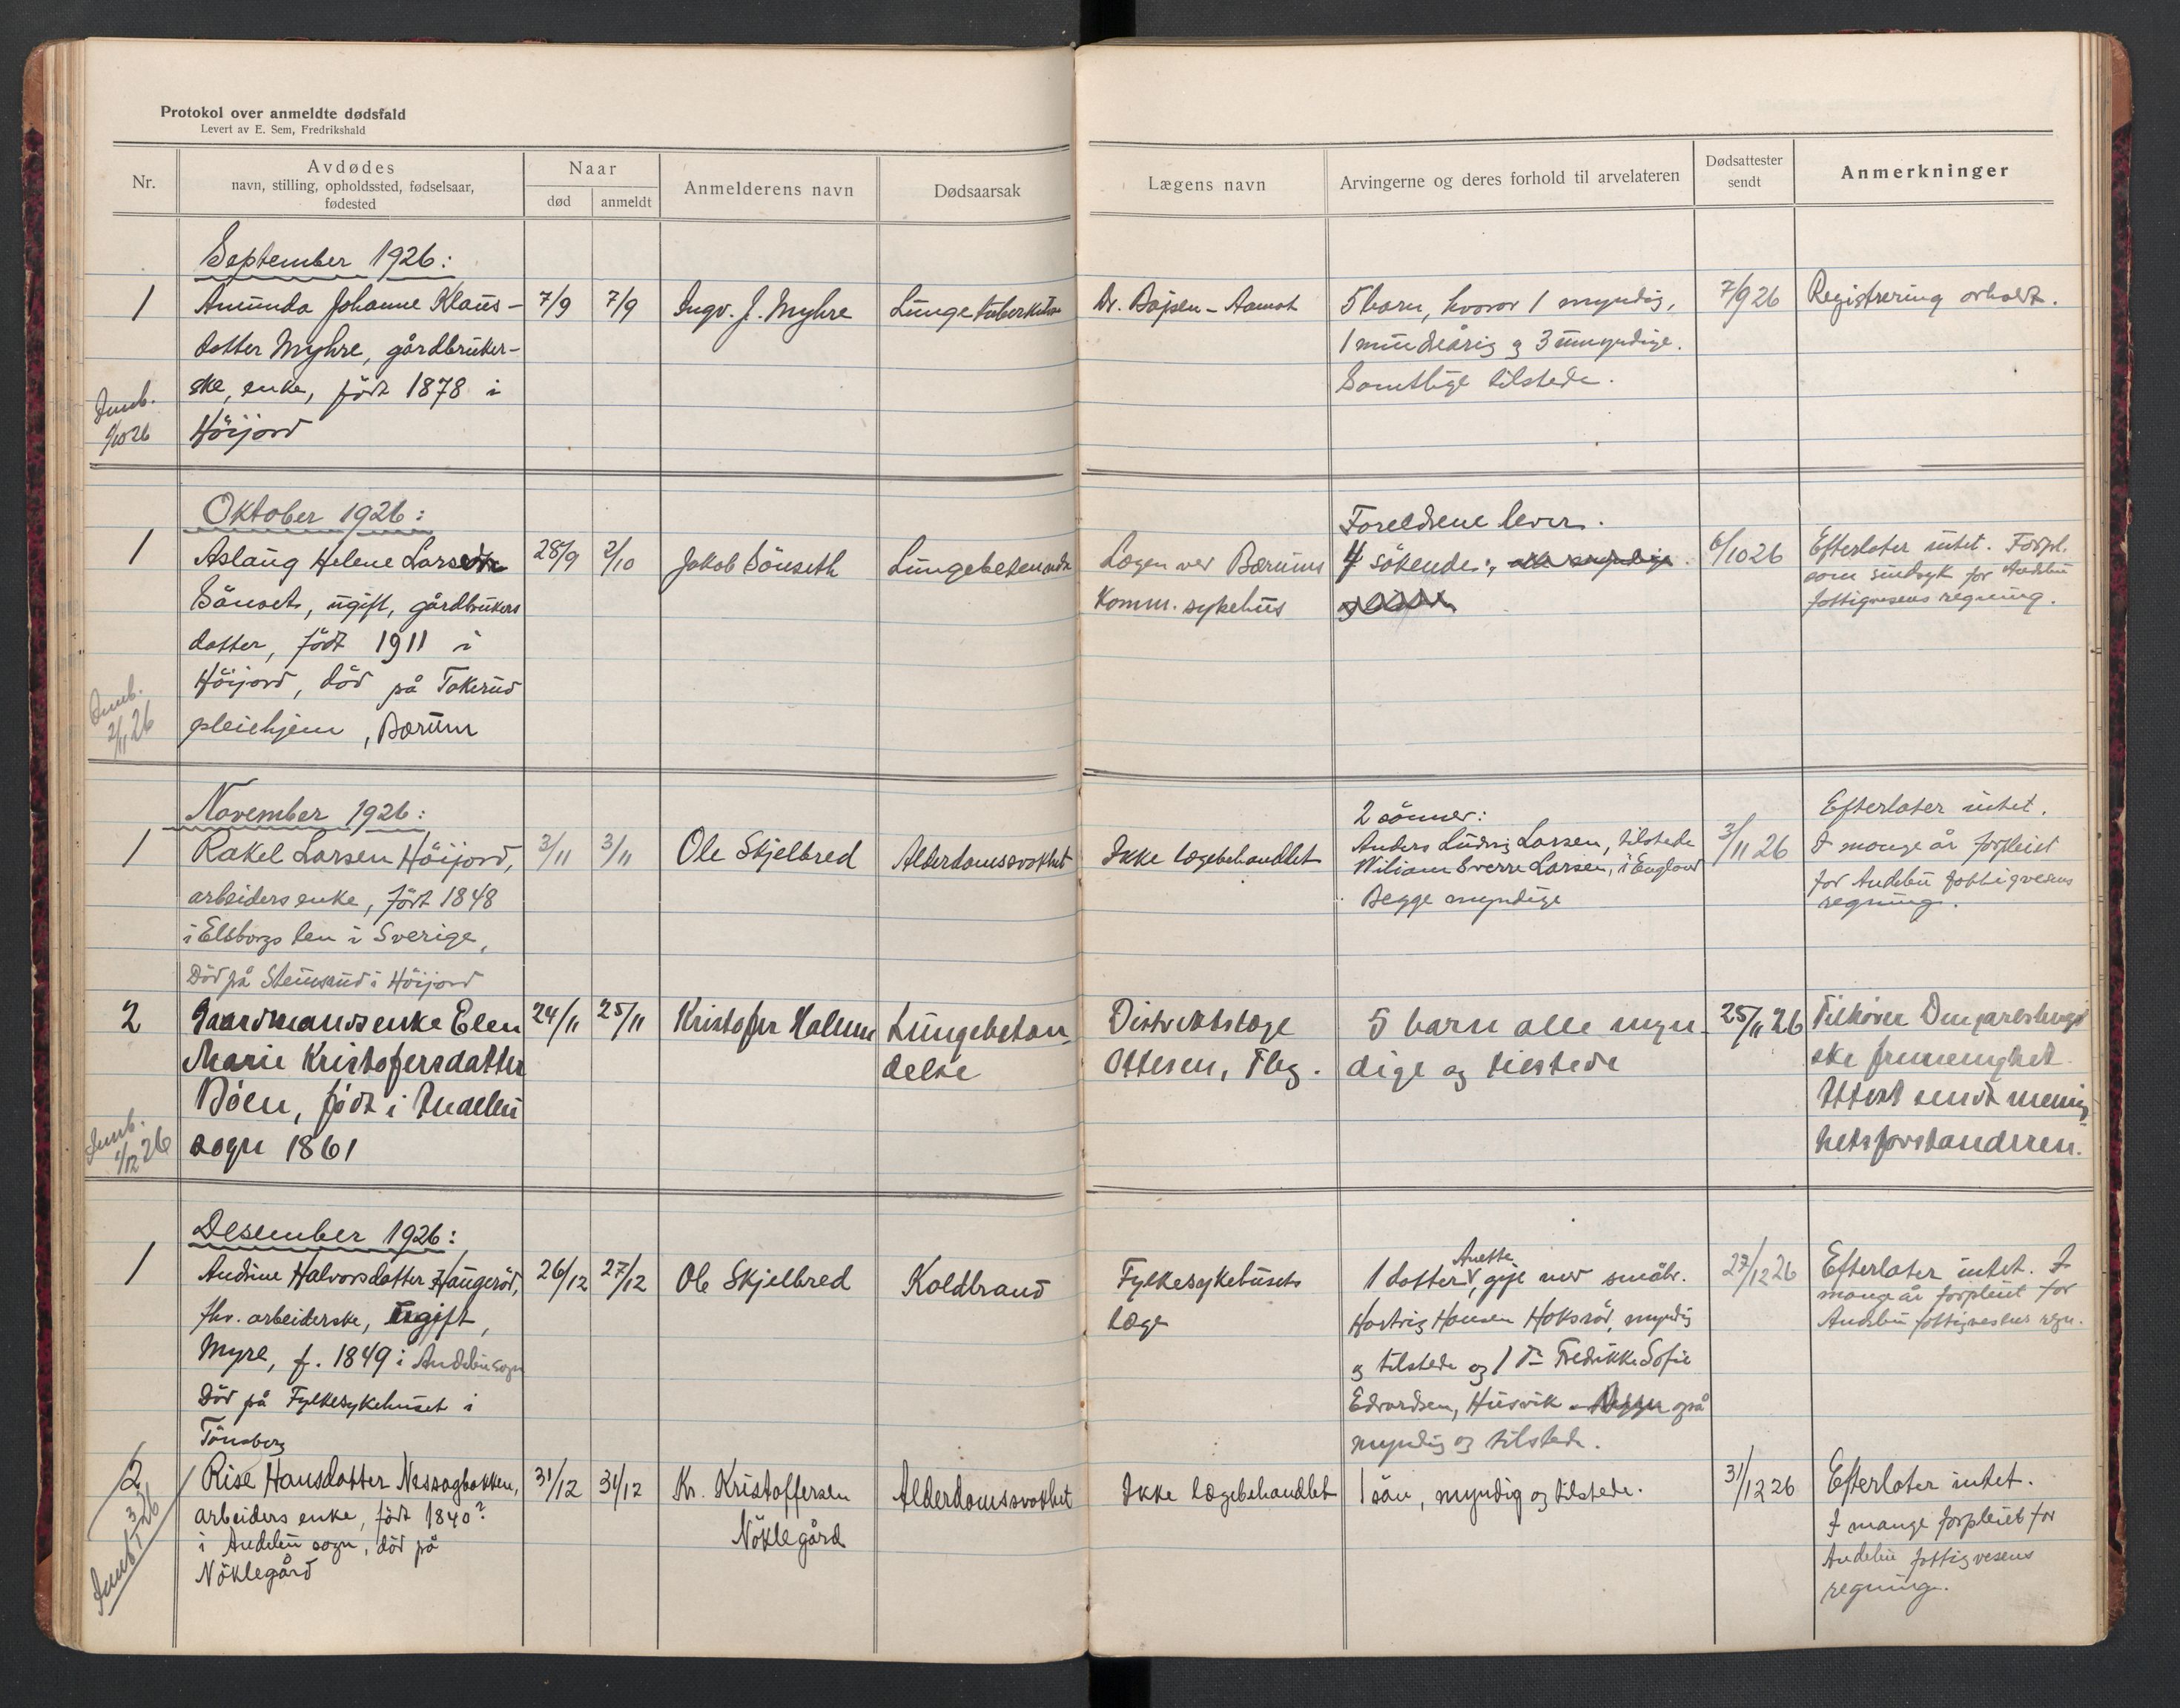 Protokol over anmeldte dødsfald
Levert av E. Sem, Fredrikshald
Nr.
Avdødes
navn, stilling, opholdssted, fødselsaar,
fødested
Naar
død
anmeldt
Anmelderens navn
Dødsaarsak
Lægens navn
Arvingerne og deres forhold til arvelateren
Dødsattester
sendt
Anmerkninger
September 1926:
1
Amunda Johanne Klaus-
datter Myhre, gårdbruker-
ske, enke, födt 1878 i
Höijord
7/9
7/9
Ingv. J. Myhre
Lungetuberkulose
Dr. Bojsen-Aamot
5 barn, hvorav 1 myndig,
1 mindreårig og 3 umyndige.
Samtlige tilstede.
7/9 26
Registrering avholdt.
Innb.
1/10 26
Oktober 1926:
1
Aslaug Helene Larsdtr
Sånset, ugift, gårdbrukers
datter, födt 1911 i
Höijord, död på Tokerud
pleiehjem, Bærum
28/9
2/10
Jakob Sönseth
Lungebetendelse
Lægen ved Bærums
Komm. sykehus
Foreldrene lever.
4 söskende,
6/10 26
Efterlater intet. Forpl.
som sindsyk for Andebu
fattigvesens regning.
Innb.
2/11 26
November 1926:
1
Rakel Larsen Höijord,
arbeidersenke, födt 1848
i Elsborgs len i Sverige,
Död på Stensrud i Höijord
3/11
3/11
Ole Skjelbred
Alderdomssvakhet
Ikke lægebehandlet
2 sönner:
Anders Ludvig Larsen, tilstede
Wiliam Sverre Larsen, i England
Begge myndige
3/11 26
Efterlater intet.
I mange år forpleiet
for Andebu fattigvesens
regning.
2
Gaardmandsenke Elen
Marie Kristofersdatter
Böen, födt i Andebu
sogn 1861
24/11
25/11
Kristofer Halum
Lungebetæn
delse
Distriktslæge
Ottesen, Tbg.
5 barn alle myn-
dige og tilstede
25/11 26
Tilhörer Den jarlsbergs
ske frimenighet.
Attest sendt menig
hetsforstanderen.
Innb.
1/12 26
Desember 1926:
1
Andrine Halvorsdatter Haugeröd,
fhv. arbeiderske, ugift,
Myre, f. 1849 i Andebu sogn
Död på Fylkesykehuset i
Tönsberg
26/12
27/12
Ole Skjelbred
Koldbrand
Fylkesykehusets
læge
Anette
1 datter, gift med småbr.
Hartvig Hansen Haksröd, myndig
og tilstede og 1 do Fredrikke Sofie
Edvardsen, Husvik også
myndig og tilstede.
27/12 26
Efterlater intet. I
mange år forpleiet for
Andebu fattigvesens regn.
2
Rise Hansdatter Nessagbakken,
arbeidersenke, födt 1840?
i Andebu sogn, död på
Nöklegård
31/12
31/12
Kr. Kristoffersen
Nöklegård
Alderdomssvakhet
Ikke lægebehandlet
1 sön, myndig og tilstede.
31/12 26
Efterlater intet.
I mange forpleiet for
Andebu fattigvesens
regning.
Innb. 3/1 26